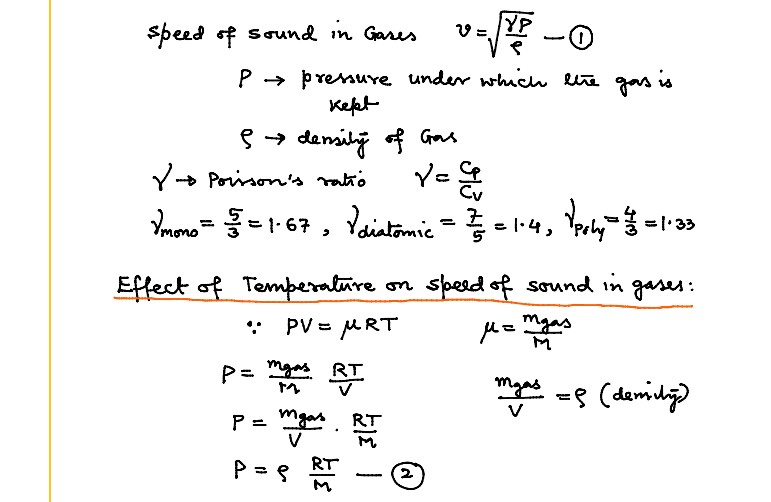 Speed of sound in Gases v = √(γP/ρ) — ①
P → pressure under which the gas is
kept
ρ → density of Gas
γ → Poisson's ratio γ = Cp/Cv
γmono = 5/3 = 1.67 , γdiatomic = 7/5 = 1.4, γPoly = 4/3 = 1.33
Effect of Temperature on speed of sound in gases:
∵ PV = μRT μ = mgas/M
P = mgas/M RT/V
mgas/V = ρ (density)
P = mgas/V . RT/M
P = ρ RT/M — ②